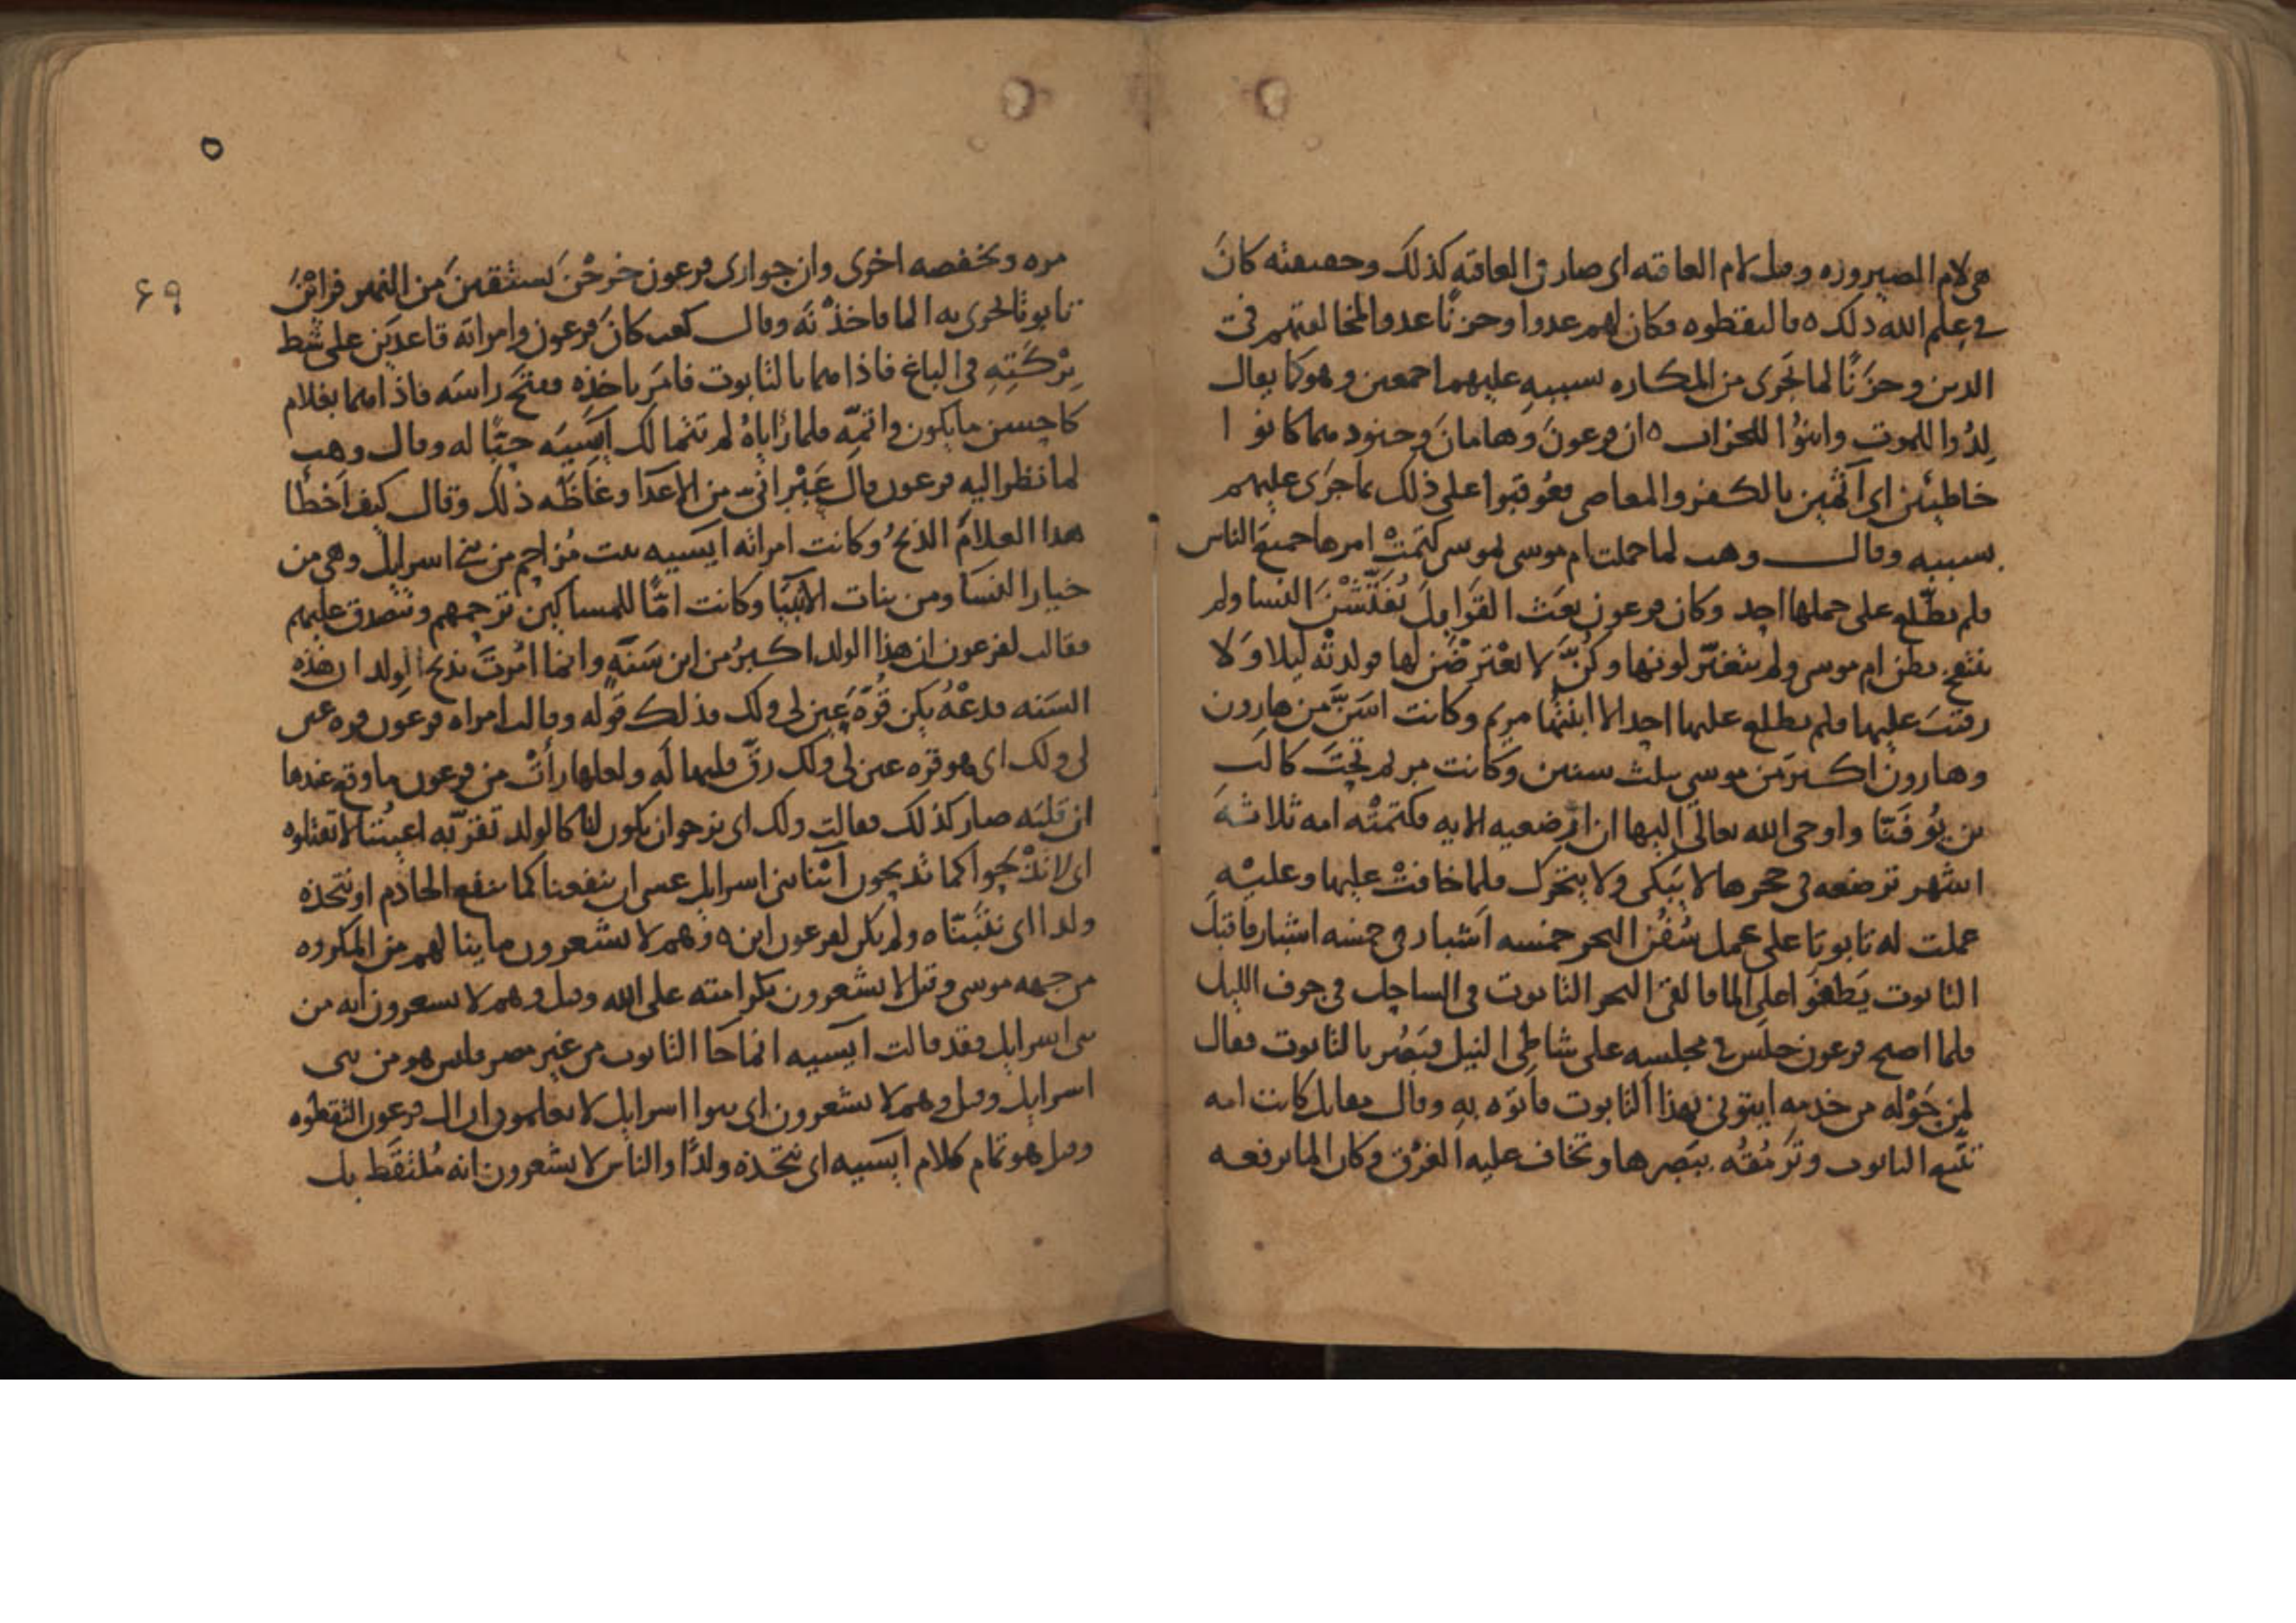 هى لام الصيروره وقيل لام العاقبه اى صار فى العاقبه كذلك وحقيقته كان
فى علم الله ذلك ٥ فالتقطوه فكان لهم عدوا وحزنًا عدوا لمخالفتهم فى
الدين وحزَنًا لما جَرى من المكاره بسببهِ عليهما اجمعين وهو كما يقال
لِدُوا للموتِ وابنُوْا للخراب ٥ ان فرعونَ وهامانَ وجنودهما كانوا
خاطئين اى آثمين بالكفر والمعاصى فعُوقبوا على ذلك بما جَرَى عليهم
بسببه وقال وهب لما حملت ام موسى بموسى كتمَتْ امرها جميعَ الناس
فلم يطّلع على حملها احد وكان فرعون بعَث القوَابِلَ يُفَتِّشْنَ النسا ولم
ينتفخ بطن ام موسى ولم يتغيّر لونها وكُنَّ لا يعْترضْنَ لها فولدتْه ليلا ولا
رقيبَ عليها فلم يطلع عليها احد الا ابنتُها مريم وكانت اسَنَّ من هارون
وهارون اكبرَ من موسى بثلث سنين وكانت مريم تحتَ كالَب
بن يُوفَنّا واوحى الله تعالى اليها ان ارضعيه الايه فكتمتْه امه ثلاثه
اشهر ترضعه فى حجرها لا يبكى ولا يتحرك فلما خافتْ عليها وعليْهِ
عملت له تابوتا على عمل سُفُن البحر خمسه اشبار فى خمسه اشبار فاقبل
التابوت يَطفوُا على الما فالقى البحر التابوت فى الساحل فى جوف الليل
فلما اصبح فرعون جلَس فى مجلسه على شاطِئ النيل فبَصُر بالتابوت فقال
لمن حَوْله من خدمه ايتونى بهذا التابوت فاتوه بهِ وقال مقاتل كانت امه
تتّبع التابوت وتَرْمُقُه ببَصرها وتخاف عليه الغَرْق وكان الما يرفعه
٥
٦٩
مره ويخفضه اخرى وان جوارى فرعون خرجْنَ يستقين من النهر فراَيْنَ
تابوتا يجرى به الما فاخذْنَه وقال كعب كانَ فرعون وامراته قاعدَين على شط
بِرْكَتِهِ فى الباغ فاذا هما بالتابوت فامَر باخذِه ففتح راسَه فاذا هما بغلام
كاحسن ما يكون واتمِّه فلما رَاياهُ لم تتمالك آيسيَه حبّا له وقال وهب
لما نظر اليه فرعون قال عَبْرانىّ من الاعدَا وغاظَه ذلك وقال كيف اَخْطا
هذا الغلامَ الذبحُ وكانت امراته ايسيه بنت مُزاحِم من بنى اسرايل وهى من
خيار النسَا ومن بنات الاَنبيَا وكانت امًّا للمساكين ترحمهم وتتصدق عليهم
فقالت لفرعون ان هذا الولد اكبرُ من ابن سَنَةٍ وانما اَمَرتَ بذبح الولدان هذه
السَنه فدعْهُ يكن قُرّةَ عَين لى ولك فذلك قوله وقالت امراه فرعون قره عين
لى ولك اى هو قره عين لى ولك رقَّ قلبها لَهِ ولعلها رأتْ من فرعون ما وقع عندها
ان قلبَه صار كذلك فقالت ولك اى نرجو ان يكون لنا كالولد تقرّ به اعيُننا لا تقتلوه
اى لا تذبحوا كما تذبحون ابْنا بنى اسرايل عسى ان ينفعنا كما ينفع الخادم او نتخذه
ولدا اى نتبنّاه ولم يكن لفرعون ابن ٥ وهم لا يشعرون ما ينالهم من المكروه
من جهه موسى وقيل لا يشعرون بكرامته على الله وقيل وهم لا يشعرون انه من
بنى اسرايل فقد قالت آيسيه انما جَا التابوت من غير مصر فليس هو من بنى
اسرايل وقيل وهم لا يشعرون اى بنوا اسرايل لا يعلمون ان ال فرعون التقطوه
وقيل هو تمام كلام ايسيه اى نتخذه ولدًا والناس لا يشعرون انه مُلتَقَط بل